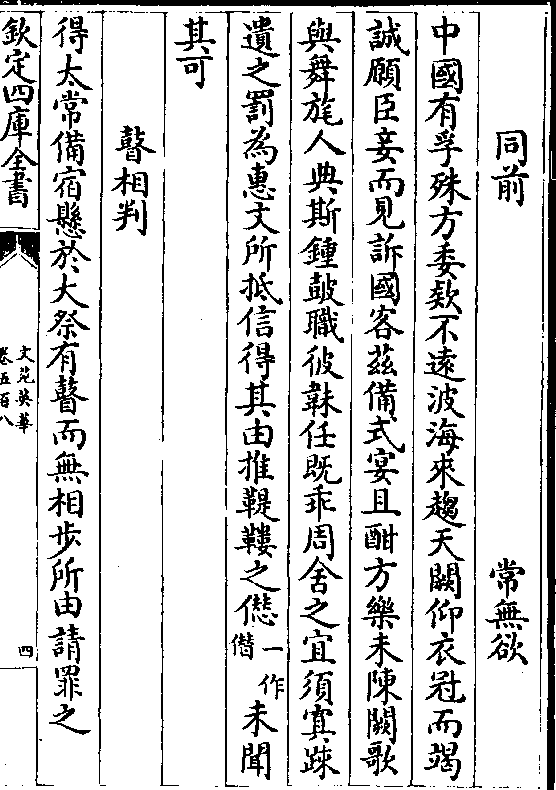 同前　　　　　　　常無欲
中國有孚殊方委欵不遠波海來趨天闕仰衣冠而竭
誠願臣妾而見訴國客茲備式宴且酣方樂未陳闕歌
與舞旄人典斯鍾皷職彼韎任既乖周舍之宜須寘踈
遺之罰為惠文所抵信得其由推鞮鞻之僁一作僣未聞
其可
瞽相判
得太常備宿懸於大祭有瞽而無相歩所由請罪之
欽定四庫全書
文苑英華
卷五百八
四